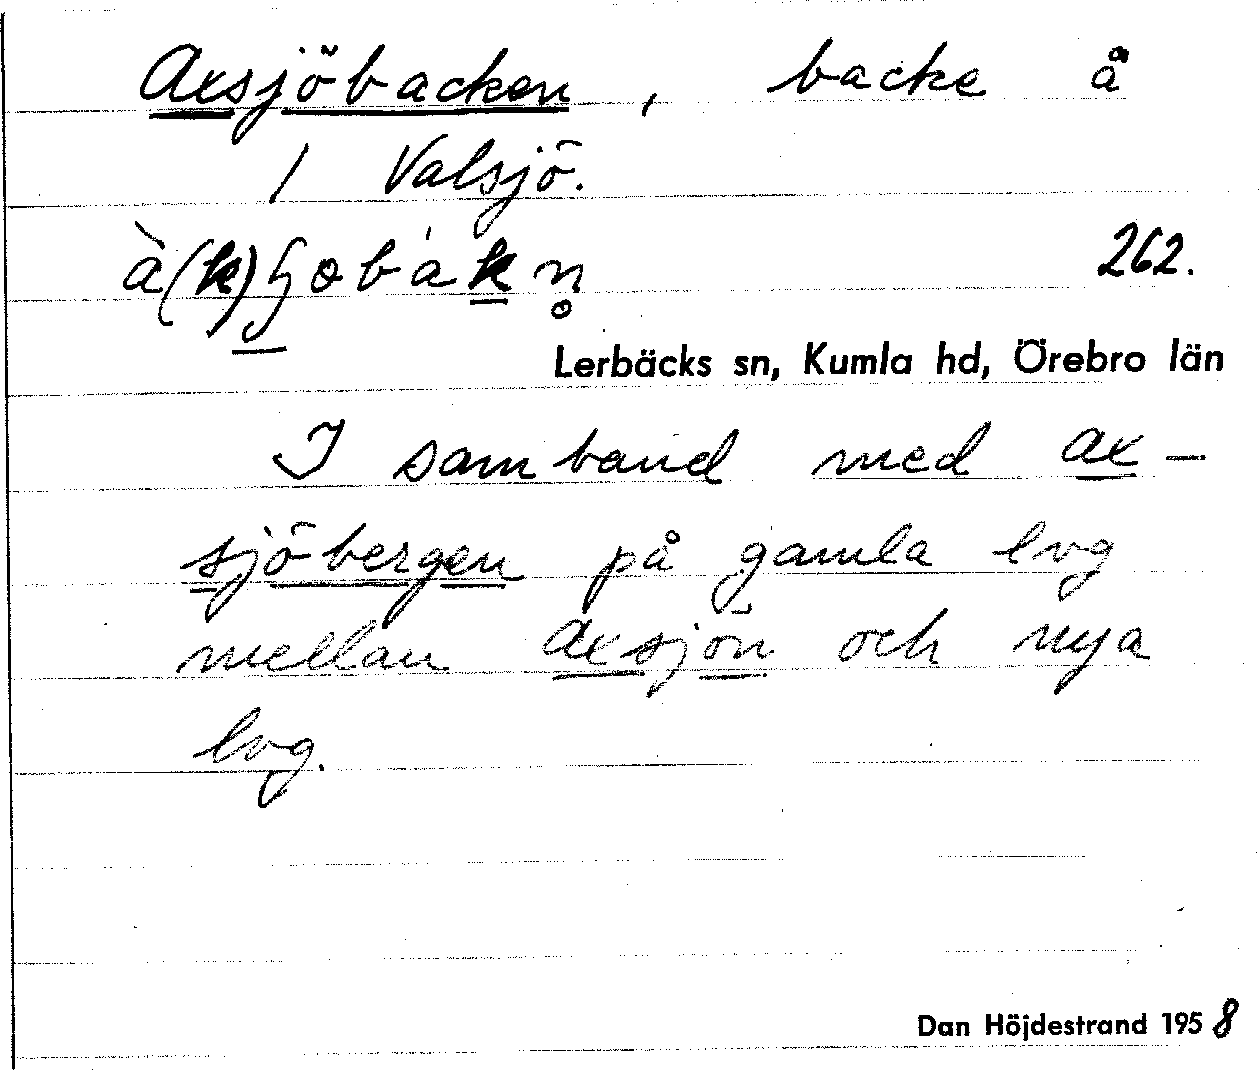 Axsjöbacken, backe å
1 Valsjö.
262.
Lerbäcks sn, Kumla hd, Örebro län
I samband med Ax-
sjöbergen på gamla lvg
mellan Axsjön och nya
lvg.
Dan Höjdestrand 1958